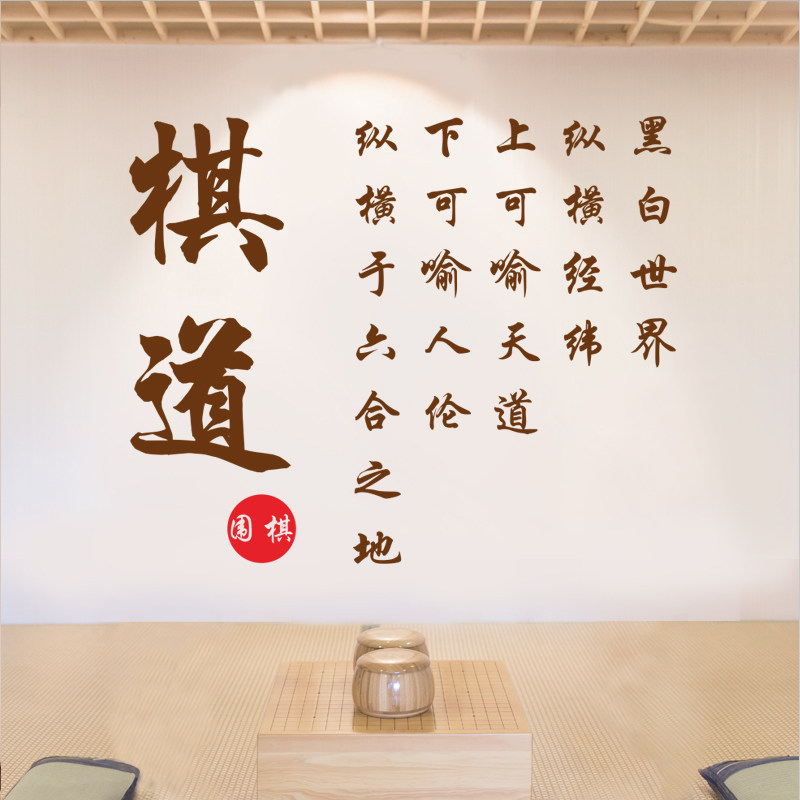 黑白世界
纵横经纬
上可喻天道
下可喻人伦
纵横于六合之地
棋道
围棋